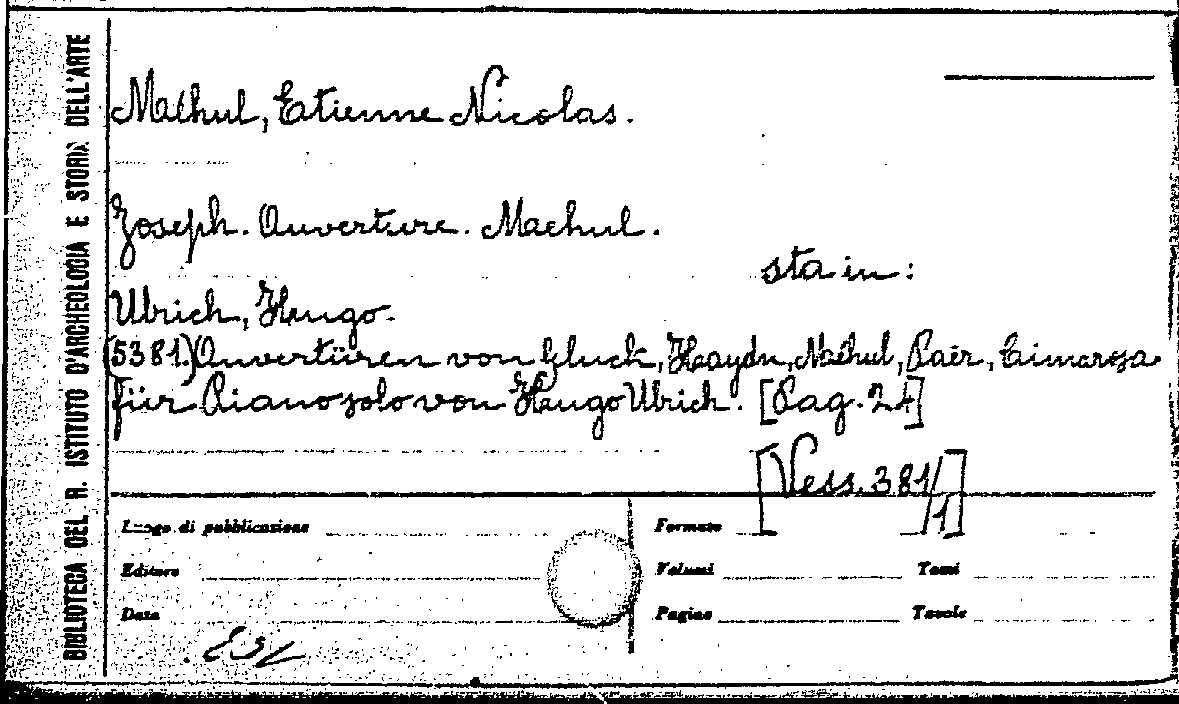 BIBLIOTECA DEL R. ISTITUTO D'ARCHEOLOGIA E STORIA DELL'ARTE
Melhul, Etienne Nicolas.
Joseph. Ouverture. Maehul.
sta in:
Ulrich, Hugo.
(5381) Ouvertüren von Gluck, Haydn, Mélhul, Paër, Cimarosa
für Piano solo von Hugo Ulrich. [Pag. 24]
[Vess. 381/1]
Luogo di pubblicazione
Formato
Editore
Volumi
Tomi
Data
Pagine
Tavole